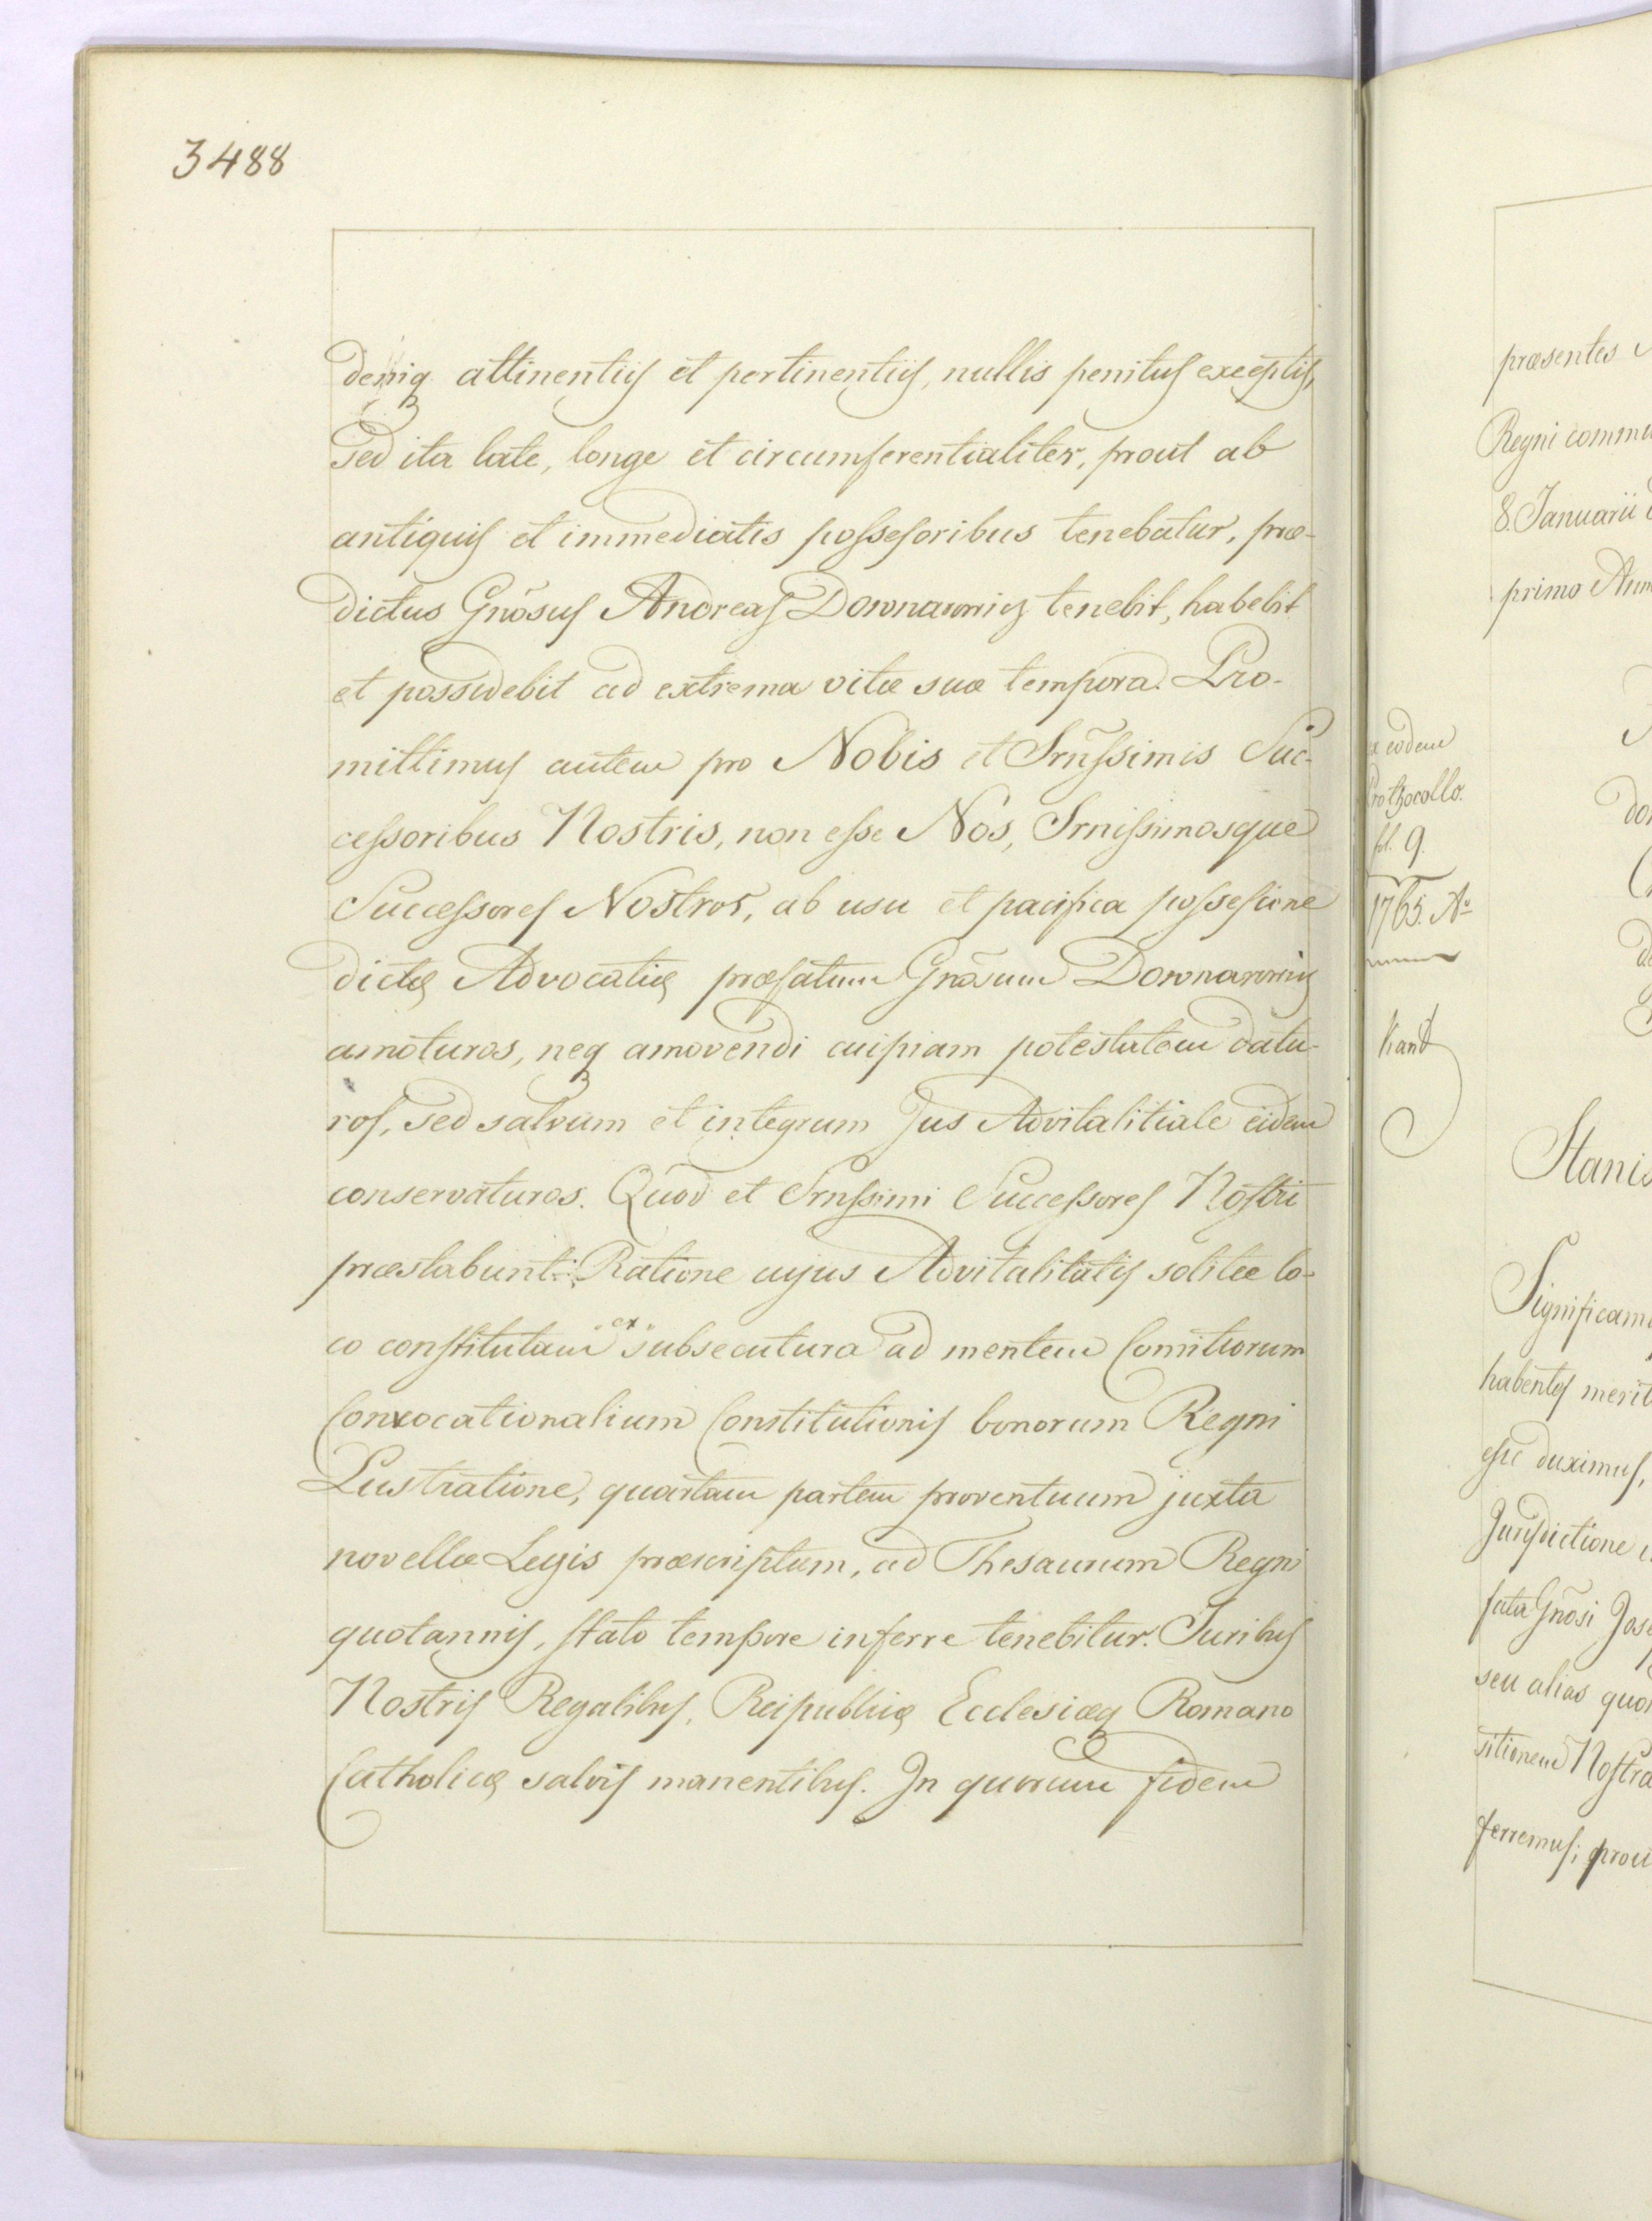 3488
deniq attinentiis et pertinentiis, nullis penitus exceptis,
sed ita late, longe et circumferentialiter, prout ab
antiquis et immediatis possessoribus tenebatur, præ-
dictus Gnõsus Andreas Downarowicz tenebit, habebit
et possidebit ad extrema vitæ suæ tempora. Pro-
mittimus autem pro Nobis et Srnissimis Suc-
cessoribus Nostris, non esse Nos, Srnissimosque
Successores Nostros, ab usu et pacifica possessione
dictæ Advocatiæ præfatum Gnõsum Downarowicz
amoturos, neq amovendi cuipiam potestatem datu-
ros, sed salvum et integrum Jus Advitalitiale eidem
conservaturos. Quod et Srnssimi Successores Nostri
præstabunt. Ratione cujus Advitalitatis solitæ lo-
co constitutam "ex" subsecutura ad mentem Comitiorum
Convocationalium Constitutionis bonorum Regni
Lustratione, quartam partem proventuum juxta
novellæ Legis præscriptum, ad Thesaurum Regni
quotannis, stato tempore inferre tenebitur. Juribus
Nostris Regalibus, Reipublicæ Ecclesiæq Romano
Catholicæ salvis manentibus. In quorum fidem
præsentes
Regni
8. Januarii
primo
ex eodem
Prothocollo.
fol. 9.
1765. Ao
Kand
Stanis
Significam
habentes merit
esse duximus,
Jurisdictione
fata Gnõsi Jose
seu alias quo
sitionem Nostra
ferremus; prou